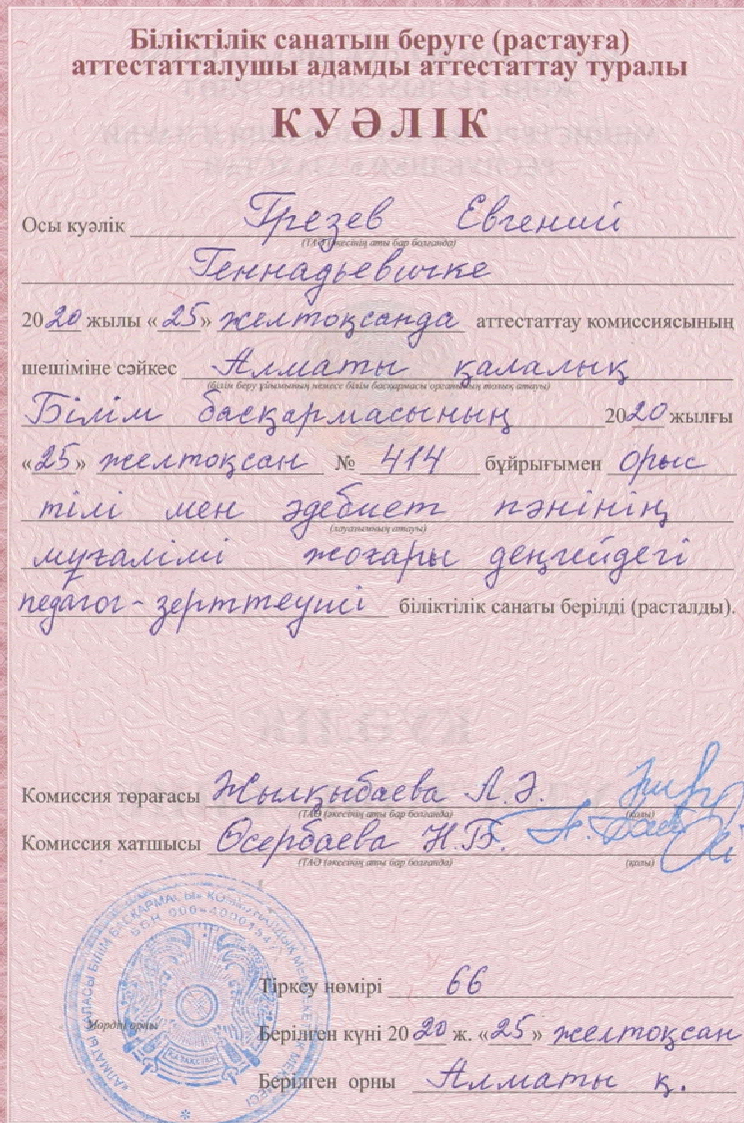 Біліктілік санатын беруге (растауға)
аттестатталушы адамды аттестаттау туралы
КУӘЛІК
Осы куәлік Грезев Евгений
(ТАӘ (әкесінің аты бар болғанда)
Геннадьевичке
2020 жылы «25» желтоқсанда аттестаттау комиссиясының
шешіміне сәйкес Алматы қалалық
(білім беру ұйымының немесе білім басқармасы органының толық атауы)
Білім басқармасының 2020 жылғы
«25» желтоқсан № 414 бұйрығымен орыс
тілі мен әдебиет пәнінің
(лауазымның атауы)
мұғалімі жоғары деңгейдегі
педагог-зерттеуші біліктілік санаты берілді (расталды).
Комиссия төрағасы Жылқыбаева Л.Ә.
(ТАӘ (әкесінің аты бар болғанда) (қолы)
Комиссия хатшысы Өсербаева Н.Б.
(ТАӘ (әкесінің аты бар болғанда) (қолы)
Тіркеу нөмірі 66
Мөрдің орны
Берілген күні 2020 ж. «25» желтоқсан
Берілген орны Алматы қ.
ҚАЗАҚСТАН